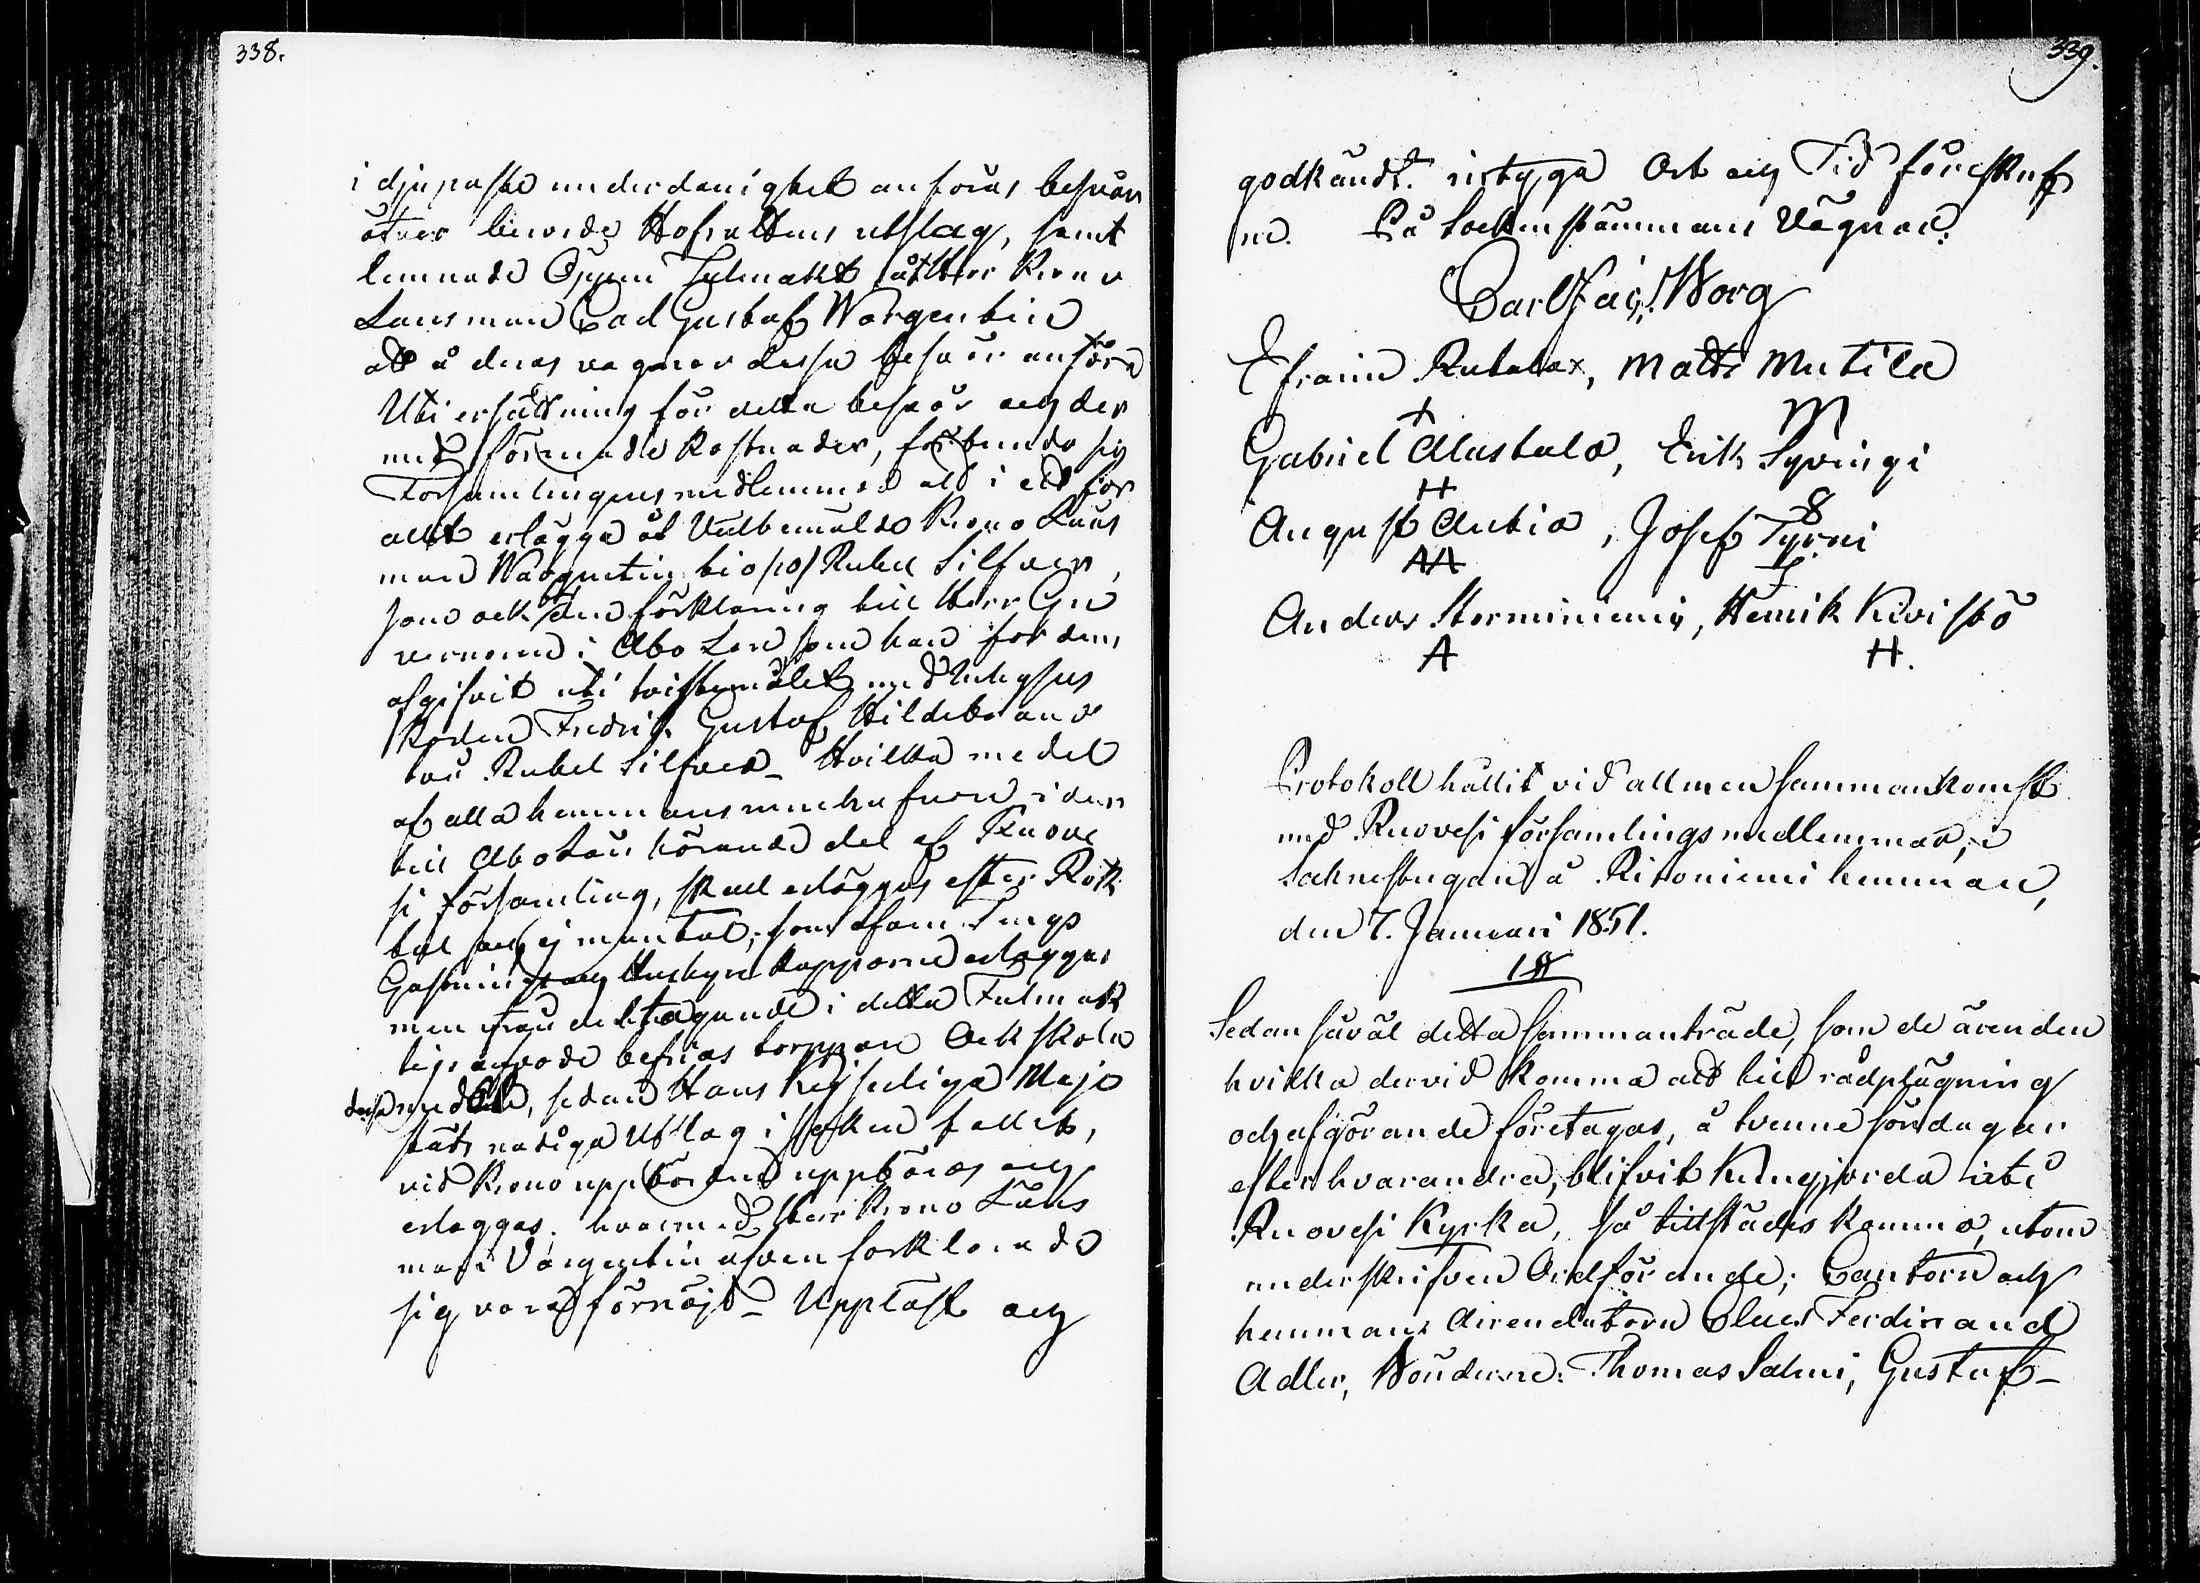 338.
i djupaste underdånighet anföras besvär
öfver berörde Hofrättens utslag, samt
lemnade Öppen Fulmakt åt Herr Krono
Länsman Carl Gustaf Wargentin
att å deras vägnar dessa besvär anföra
Uti ersättning för detta besvär och der
med förenade Kostnader, förbundo sig
Församlingens medlemmar att i ett för
allt erlägga åt Välbemälde Krono Läns
man Wargentin tio /10/ Rubel Silfver,
som ock för den förklaring till Herr Gu
vernören i Åbo Län som han för dem
afgifvit uti tvistemålet med
Fredrik Gustaf Hildebrand
två Rubel Silfver_ Hvilka medel
af alla hemmans innehafvare i den
till Åbo Län hörande del af Ruove
si församling, skall erläggas efter Rök
tal och ej mantal, som Tings
Gästnings och Kapporne erlägges
men från deltagande i detta Fulmakts
arvode befrias torppare Och skola
dessa medel, sedan Hans Kejserliga Maje
stäts nådiga Utslag i saken fallit,
vid Krono uppbörden uppbäras och
erläggas. hvarmed Herr Krono Läns
man Vargentin äfven förklarade
sig vara förnöjd_ Uppläst och
339.
godkändt. intyga Ort och Tid förskref
ne. På Sockenstämmans Vägnar:
Carl Waj: Worg
Efraim Rutalax, Matts Mutila
Gabriel Alastalo, Erik Syvingi
August Antia, Josef Tyrni
AA
Anders Storminiemi, Henrik Kivistö
A H.
Protokoll hållit vid allmen sammankomst
med Ruovesi församlingsmedlemmar, i
Socknestugan å Ritoniemi hemman,
den 7. Januari 1851.
1§
Sedan såväl detta sammanträde, som de ärenden
hvilka dervid komma att till rådplägning
och afgörande företagas, å tvenne söndagar
efter hvarandra, blifvit Kungjorda uti
Ruovesi Kyrka, så tillstädes kommo, utom
underskrifven Ordförande; Cantorn och
hemmans Arrendatorn Claes Ferdinand
Adler, Vönderne: Thomas Salmi, Gustaf_